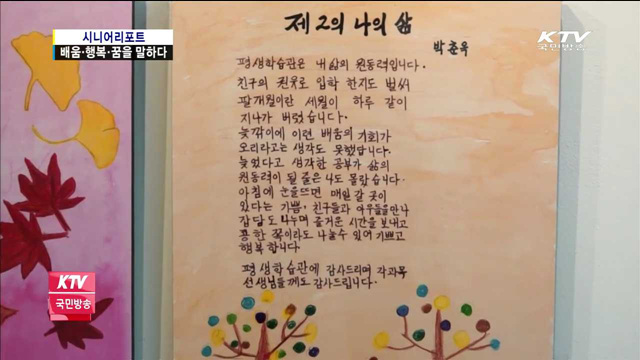 시니어리포트
배움·행복·꿈을 말하다
KTV
국민방송
제2의 나의 삶
박춘옥
평생학습관은 내 삶의 원동력입니다.
친구의 권유로 입학 한지도 벌써
팔개월이란 세월이 하루 같이
지나가 버렸습니다.
늦깎이에 이런 배움의 기회가
오리라고는 생각도 못했답니다.
늦었다고 생각한 공부가 삶의
원동력이 될 줄은 나도 몰랐습니다.
아침에 눈을뜨면 매일 갈 곳이
있다는 기쁨·친구들과 아우들을만나
잡담도 나누며 즐거운 시간을 보내고
콩한 쪽이라도 나눌수 있어 기쁘고
행복 합니다
평생학습관에 감사드리며 각과목
선생님들께도 감사드립니다.
KTV
국민방송